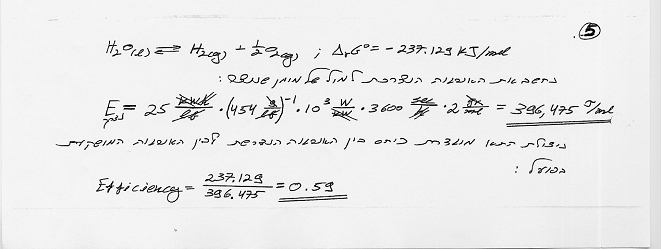 5
H₂O(l) ⇌ H₂(g) + ½O₂(g) ; ΔᵣG° = -237.129 KJ/mol
נחשב את האנרגיה הנצרכת למול של מימן שנוצר :
E = 25 kwh/lb · (454 g/lb)⁻¹ · 10³ W/kw · 3600 sec/h · 2 gr/mol = 396,475 J/mol
נצילות התא מוגדרת כיחס בין האנרגיה הנדרשת לבין האנרגיה המושקעת
בפועל :
Efficiency = 237.129/396.475 = 0.59